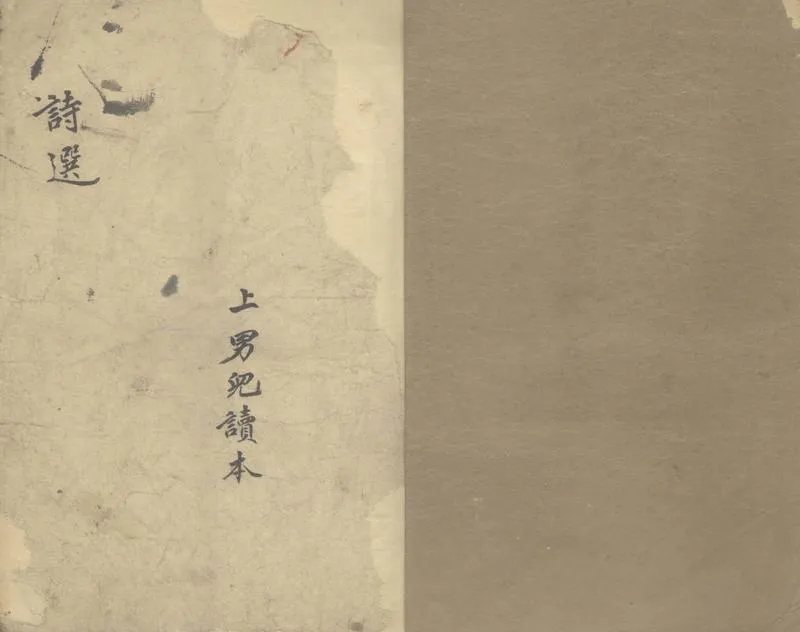 詩選
上男兒讀本